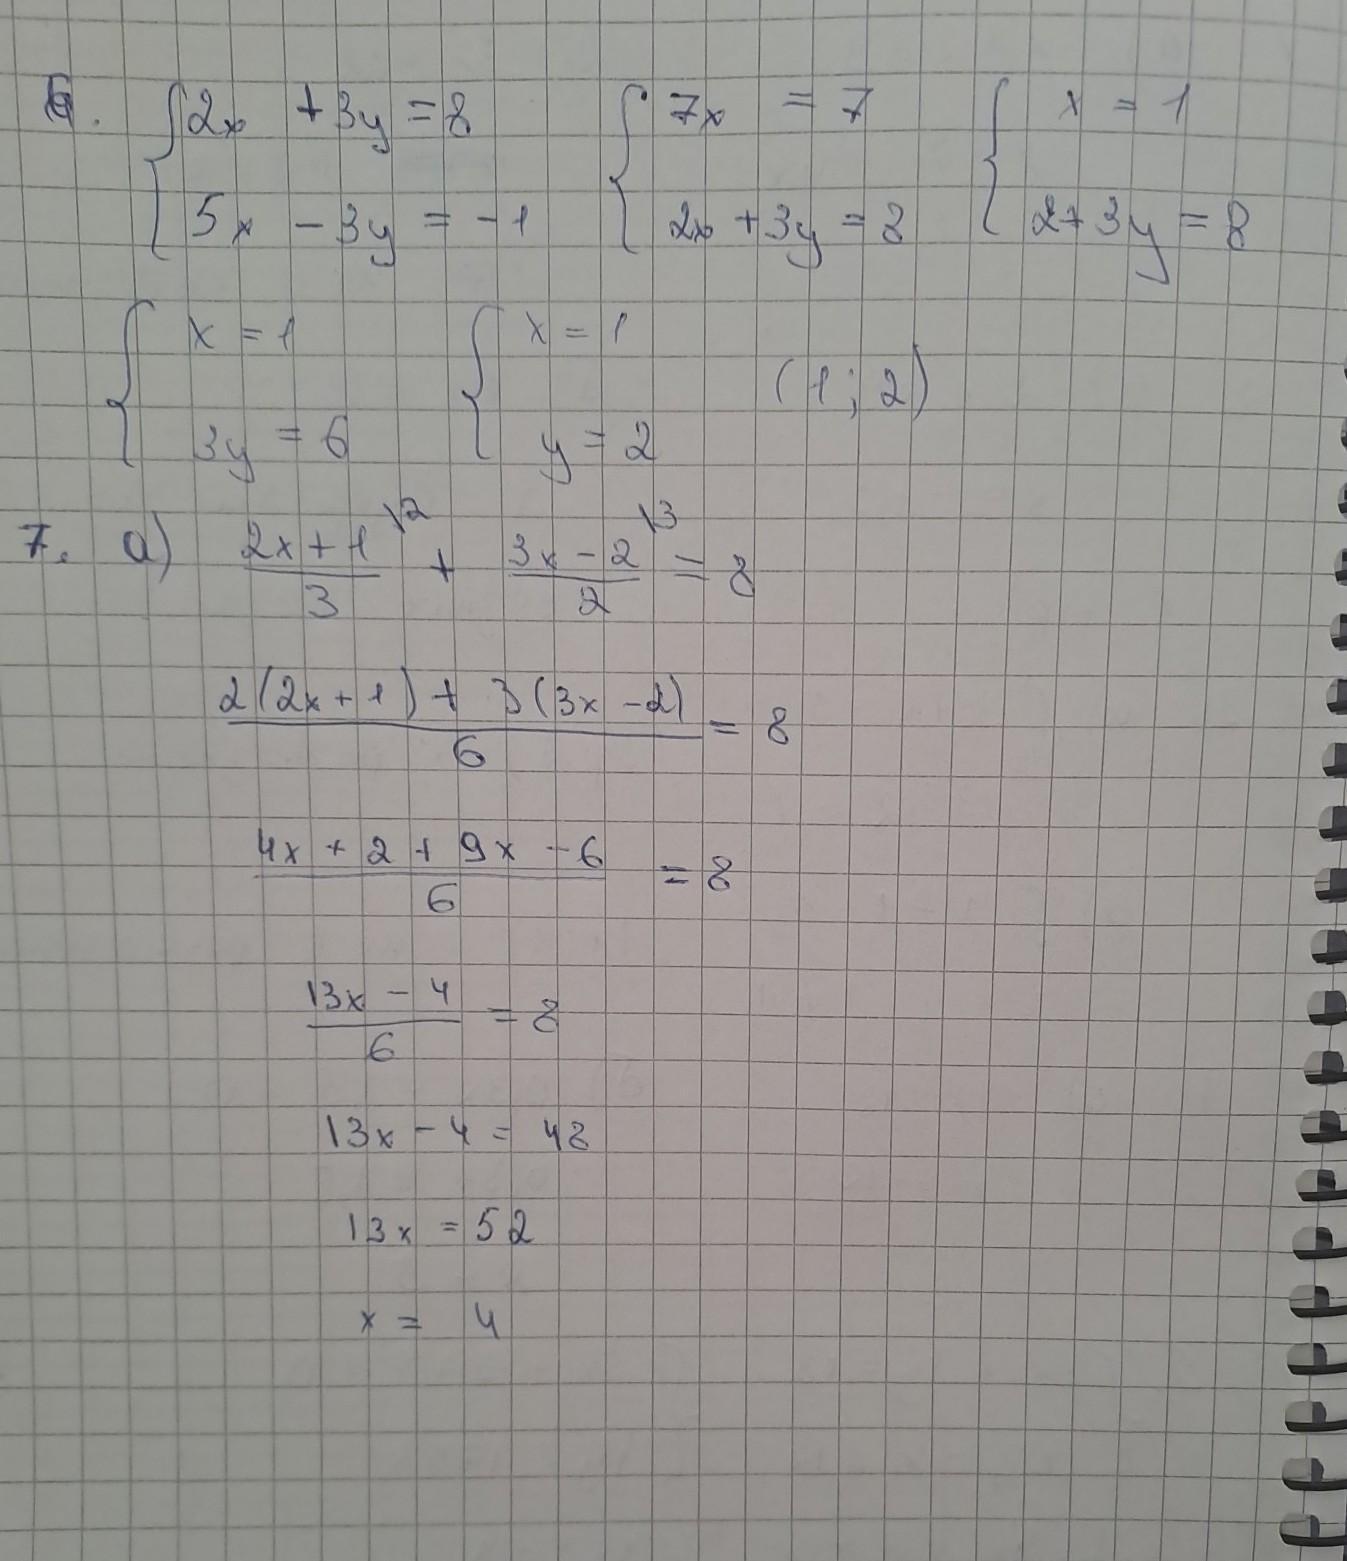 6. { 2x + 3y = 8 { 7x = 7 { x = 1
5x - 3y = -1 2x + 3y = 8 2 + 3y = 8
{ x = 1 { x = 1 (1; 2)
3y = 6 y = 2
7. a) (2x + 1)/3 \2 + (3x - 2)/2 \3 = 8
(2(2x + 1) + 3(3x - 2))/6 = 8
(4x + 2 + 9x - 6)/6 = 8
(13x - 4)/6 = 8
13x - 4 = 48
13x = 52
x = 4